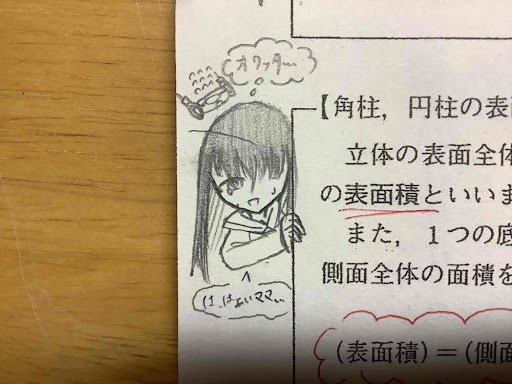 オワッター…
【角柱，円柱の表
立体の表面全体
の表面積といい
また，1つの底
側面全体の面積を
は、はぁいママ…
(表面積)＝(側面